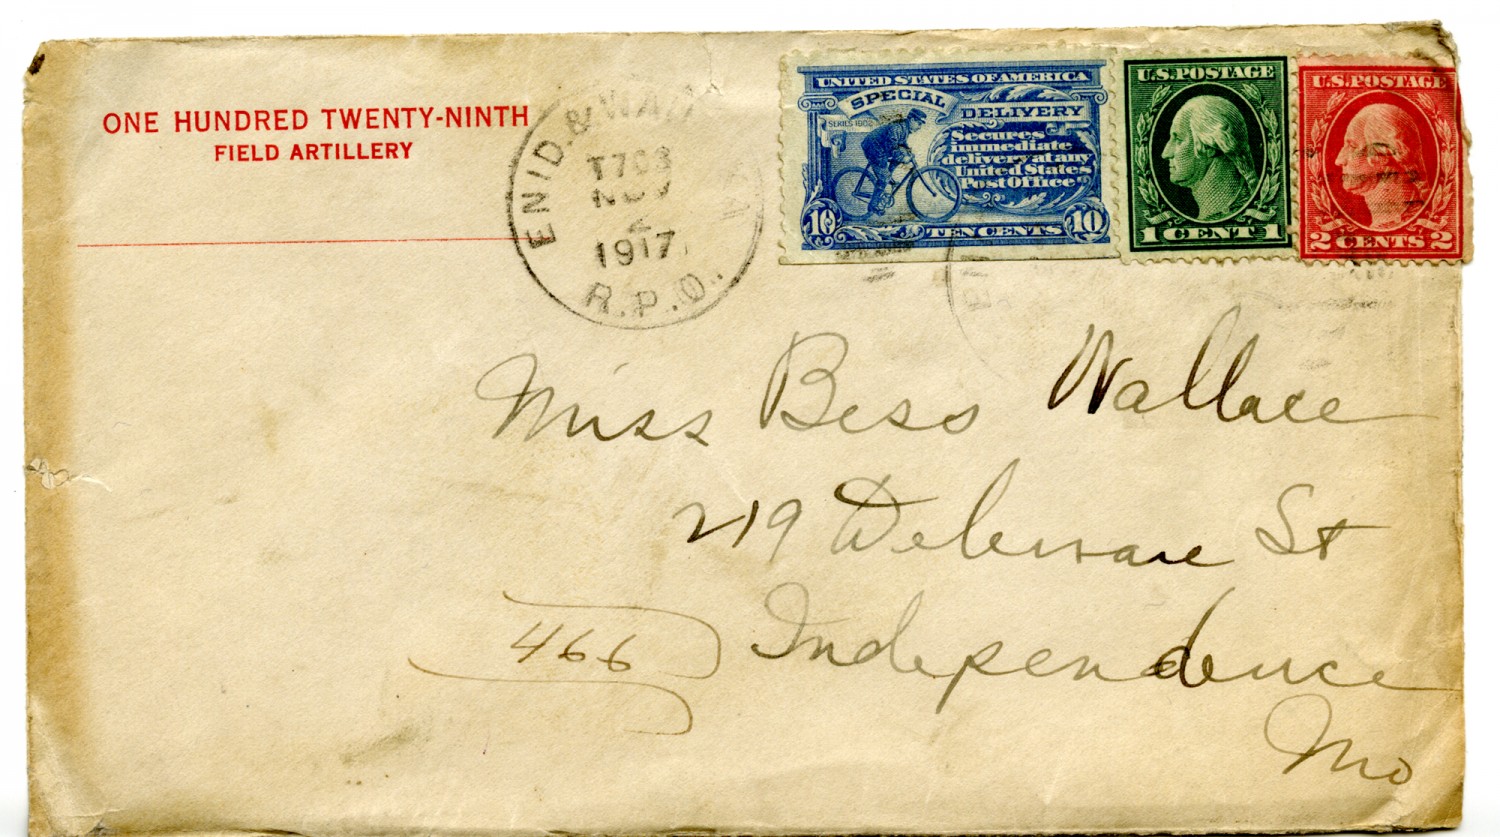 ONE HUNDRED TWENTY-NINTH
FIELD ARTILLERY
ENID. &
T703
NOV
2
1917
R.P.O.
UNITED STATES OF AMERICA
SPECIAL
DELIVERY
SERIES 1902
Secures
immediate
delivery at any
United States
Post Office
10
TEN CENTS
10
U.S. POSTAGE
1 CENT 1
U.S. POSTAGE
2 CENTS 2
Miss Bess Wallace
219 Delaware St
Independence
Mo
466